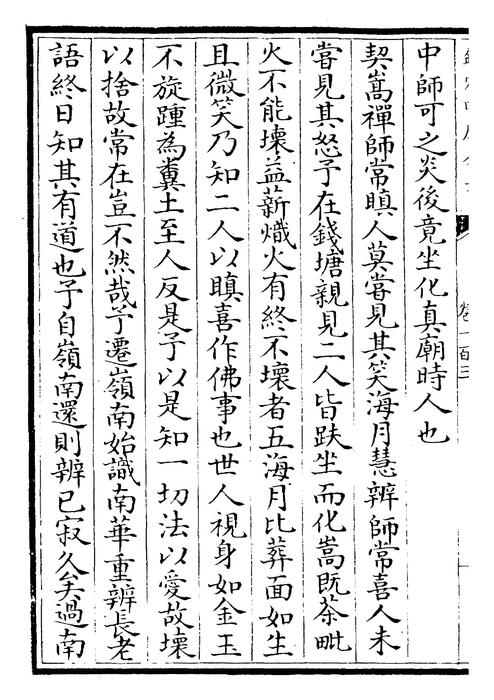 中師可之炎後竟坐化真廟時人也
契嵩禪師常瞋人莫嘗見其笑海月慧辨師常喜人未
嘗見其怒予在錢塘親見二人皆趺坐而化嵩既荼毗
火不能壞益薪熾火有終不壞者五海月比葬面如生
且微笑乃知二人以瞋喜作佛事也世人視身如金玉
不旋踵為糞土至人反是予以是知一切法以愛故壞
以捨故常在豈不然哉予遷嶺南始識南華重辨長老
語終日知其有道也予自嶺南還則辨已寂久矣過南